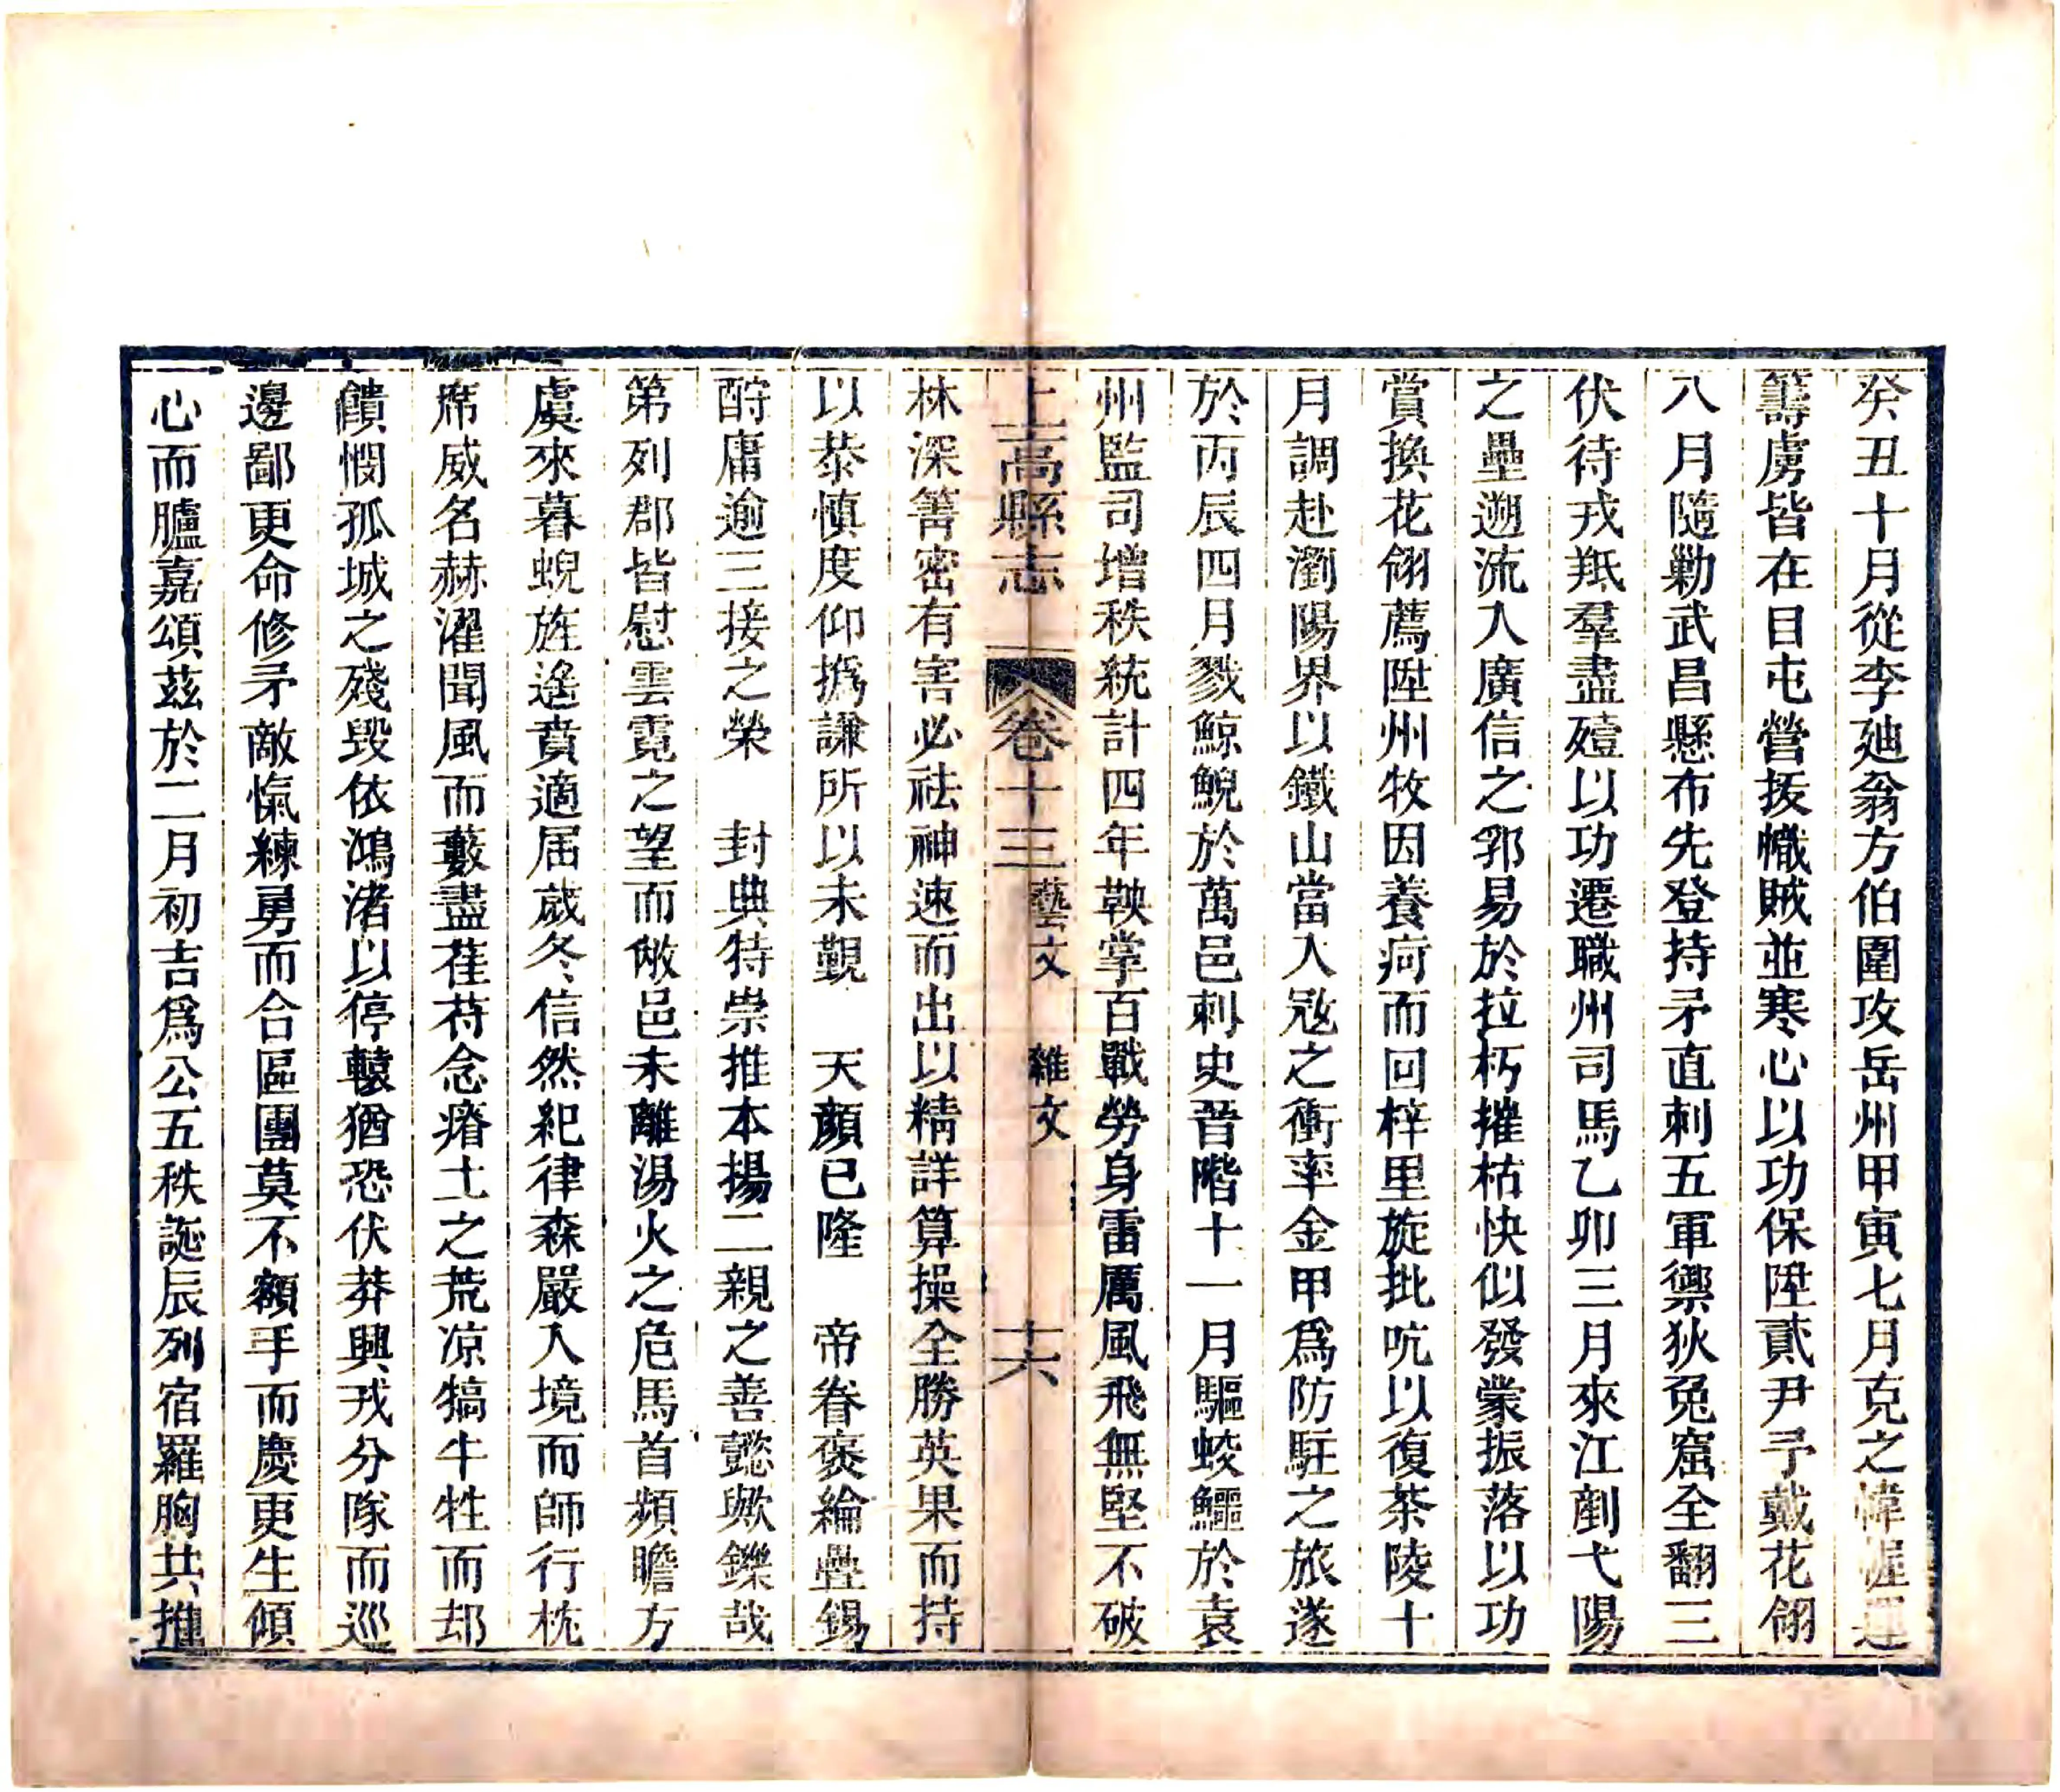 癸丑十月從李廸翁方伯圍攻岳州甲寅七月克之幃幄運
籌虜皆在目屯營拔幟賊並寒心以功保陞貳尹予戴花翎
八月隨勦武昌縣布先登持矛直刺五軍禦狄兔窟全翻三
伏待戎羝羣盡殪以功遷職州司馬乙卯三月來江剷弋陽
之壘遡流入廣信之郛易於拉朽摧枯快似發蒙振落以功
賞換花翎薦陞州牧因養疴而回梓里旋批吭以復茶陵十
月調赴瀏陽界以鐵山當入寇之衝率金甲爲防駐之旅遂
於丙辰四月戮鯨鯢於萬邑刺史晉階十一月驅蛟鱷於袁
州監司增秩統計四年鞅掌百戰勞身雷厲風飛無堅不破
上高縣志 卷十三 藝文 雜文 十六
林深箐密有害必祛神速而出以精詳算操全勝英果而持
以恭慎度仰撝謙所以未覲 天顏已隆 帝眷褒綸疊錫
酹庸逾三接之榮 封典特崇推本揚二親之善懿歟鑠哉
第列郡皆慰雲霓之望而敝邑未離湯火之危馬首頻瞻方
虞來暮蜺旌遙賁適屆歲冬信然紀律森嚴入境而師行枕
席威名赫濯聞風而藪盡萑苻念瘠土之荒凉犒牛牲而却
饋憫孤城之殘毀依鴻渚以停轅猶恐伏莽興戎分隊而巡
邊鄙更命修矛敵愾練勇而合區團莫不額手而慶更生傾
心而臚嘉頌茲於二月初吉爲公五秩誕辰列宿羅胸共推